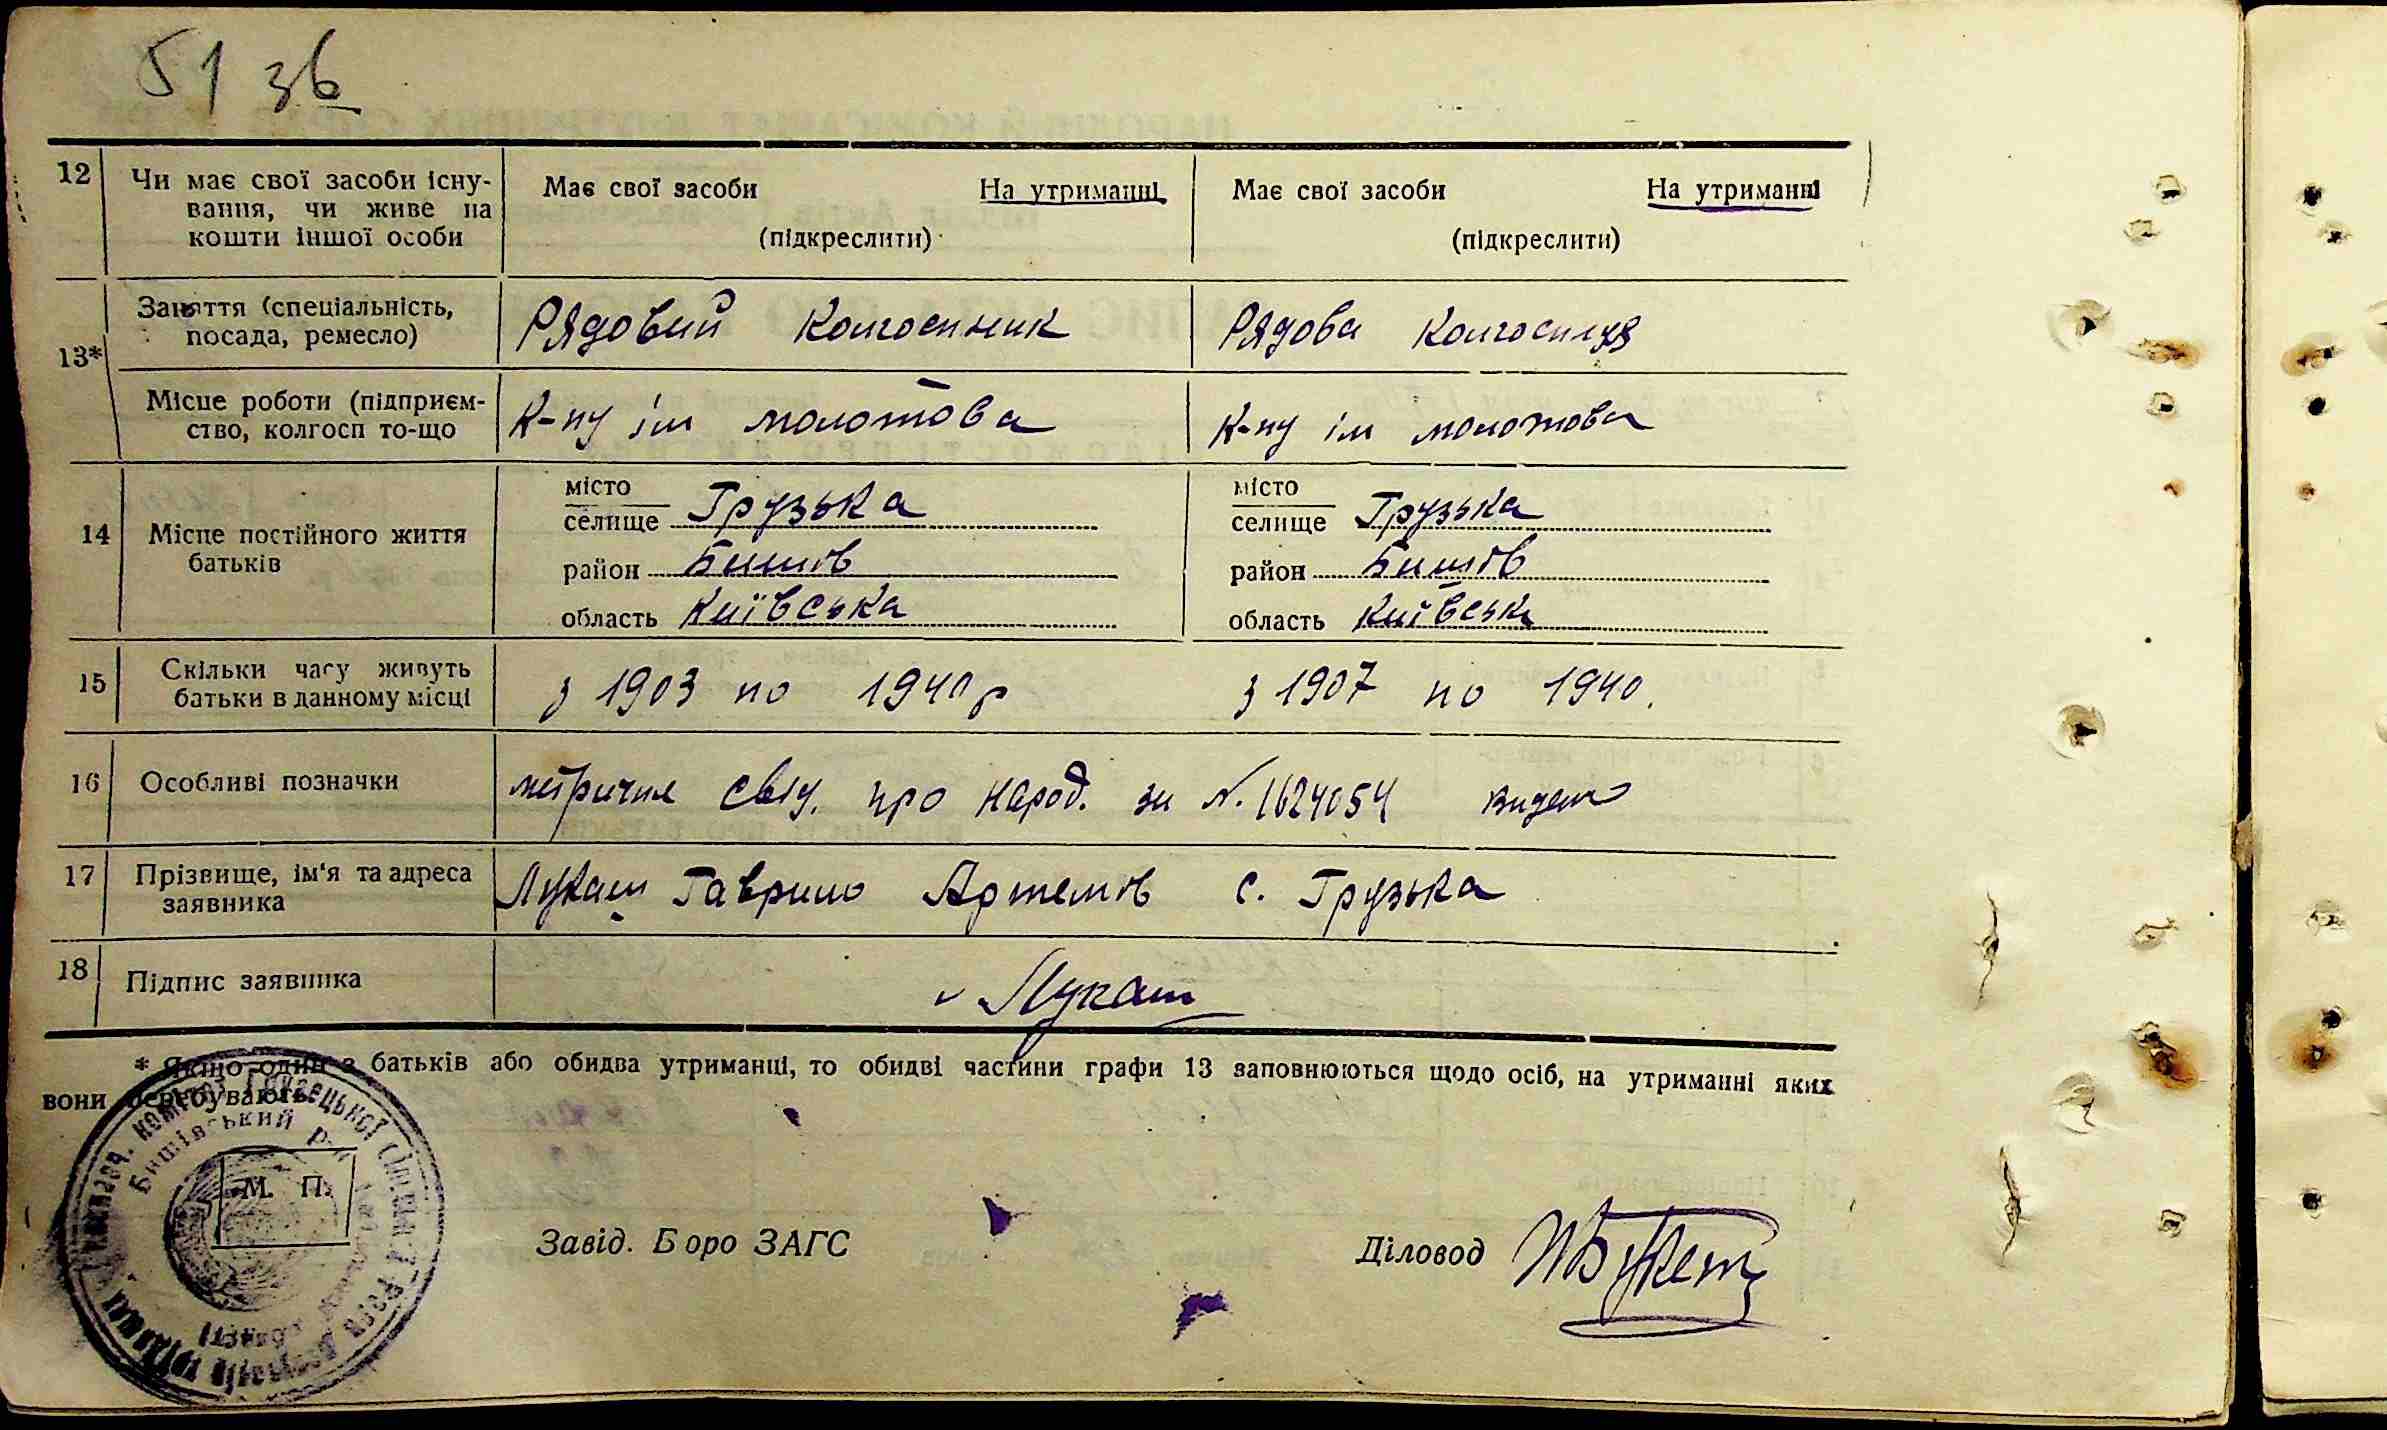 51 зв
12 Чи має свої засоби існу- Має свої засоби На утриманні Має свої засоби На утриманні
вання, чи живе на
кошти іншої особи (підкреслити) (підкреслити)
13* Заняття (спеціальність, Рядовий Колгоспник Рядова Колгоспниця
посада, ремесло)
Місце роботи (підприєм- К-пу ім молотова К-пу ім молотова
ство, колгосп то-що
14 Місце постійного життя батьків
місто місто
селище Грузька селище Грузька
район Бишів район Бишів
область Київська область Київськ
15 Скільки часу живуть з 1903 по 1940 р з 1907 по 1940.
батьки в данному місці
16 Особливі позначки метричне свід. про народ. за N. 1624054 видано
17 Прізвище, ім'я та адреса Лукаш Гаврило Артемів с. Грузька
заявника
18 Підпис заявника Лукаш
* Якщо один з батьків або обидва утриманці, то обидві частини графи 13 заповнюються щодо осіб, на утриманні яких
вони перебувають.
М. П.
Бишівський р
області
Завід. Боро ЗАГС Діловод